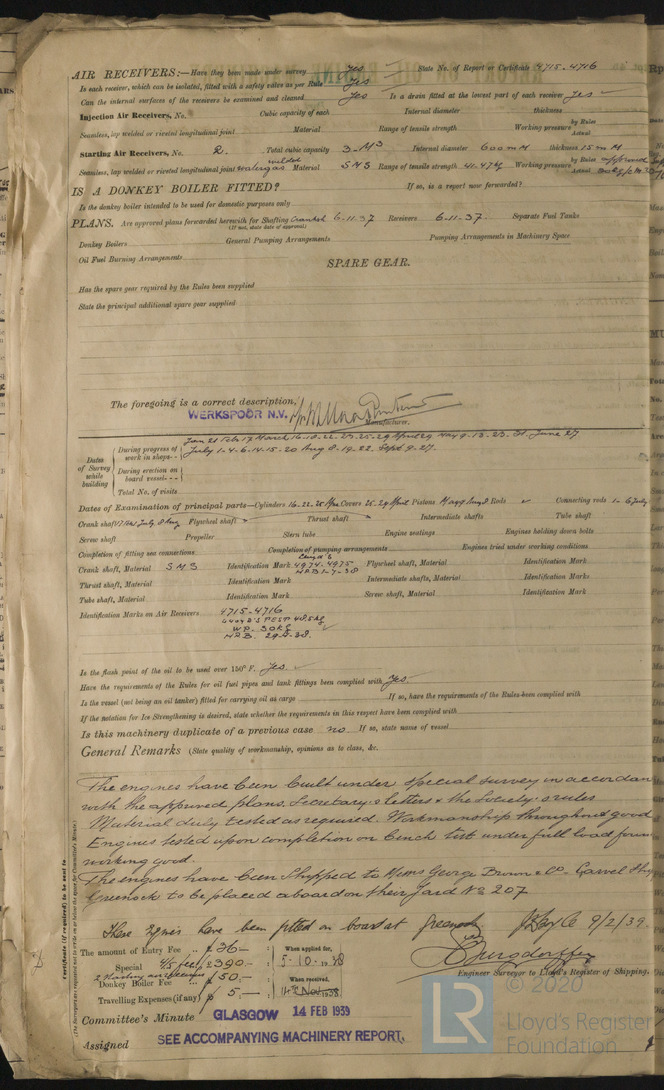 AIR RECEIVERS:—Have they been made under survey yes State No. of Report or Certificate 4715-4716
Is each receiver, which can be isolated, fitted with a safety valve as per Rule yes
Can the internal surfaces of the receivers be examined and cleaned yes Is a drain fitted at the lowest part of each receiver yes
Injection Air Receivers, No. Cubic capacity of each Internal diameter thickness
Seamless, lap welded or riveted longitudinal joint Material Range of tensile strength Working pressure by Rules Actual
Starting Air Receivers, No. 2. Total cubic capacity 3-M3 Internal diameter 600 mM thickness 15 mM
Seamless, lap welded or riveted longitudinal joint watergas welded Material SMS Range of tensile strength 41-47 kg Working pressure by Rules approved Actual
IS A DONKEY BOILER FITTED? If so, is a report now forwarded?
Is the donkey boiler intended to be used for domestic purposes only
PLANS. Are approved plans forwarded herewith for Shafting Cranksh 6.11.37 Receivers 6.11.37. Separate Fuel Tanks
(If not, state date of approval)
Donkey Boilers General Pumping Arrangements Pumping Arrangements in Machinery Space
Oil Fuel Burning Arrangements
SPARE GEAR.
Has the spare gear required by the Rules been supplied
State the principal additional spare gear supplied
The foregoing is a correct description,
WERKSPOOR N.V.
Manufacturer.
Dates of Survey while building
During progress of work in shops - - Jan 21 Feb 17 March 16-18-22-23-25-29 April 29 May 9-13-23-31 June 27
July 1-4-6-14-15-20 Aug 8-19-22 Sept 9-27.
During erection on board vessel - - -
Total No. of visits
Dates of Examination of principal parts—Cylinders 16-22-25 Mar Covers 25-29 April Pistons May 9 Aug 8 Rods Connecting rods 1-6 July
Crank shaft July 8 Aug Flywheel shaft Thrust shaft Intermediate shafts Tube shaft
Screw shaft Propeller Stern tube Engine seatings Engines holding down bolts
Completion of fitting sea connections Completion of pumping arrangements Engines tried under working conditions
Crank shaft, Material SMS Identification Mark Lloyd's 4974-4975 HRB 1-7-38 Flywheel shaft, Material Identification Mark
Thrust shaft, Material Identification Mark Intermediate shafts, Material Identification Marks
Tube shaft, Material Identification Mark Screw shaft, Material Identification Mark
Identification Marks on Air Receivers 4715-4716
LLOYD'S TEST 48.5 kg
WP. 30 kg
HRB. 29-4-38.
Is the flash point of the oil to be used over 150° F. Yes.
Have the requirements of the Rules for oil fuel pipes and tank fittings been complied with Yes.
Is the vessel (not being an oil tanker) fitted for carrying oil as cargo If so, have the requirements of the Rules been complied with
If the notation for Ice Strengthening is desired, state whether the requirements in this respect have been complied with
Is this machinery duplicate of a previous case no. If so, state name of vessel
General Remarks (State quality of workmanship, opinions as to class, &c.
The engines have been built under special survey in accordan
with the approved plans, Secretary's letters & the Society's rules
Material duly tested as required. Workmanship throughout good
Engines tested upon completion on bench test under full load foun
working good.
The engines have been shipped to Messrs George Brown & Co- Garvel Ship
Greenock to be placed aboard on their Yard No 207
These Engines have been fitted on board at Greenock 9/2/39.
The amount of Entry Fee .. £ 36-
Special 4/5 fee £ 390-
Donkey Boiler Fee .. £ 50-
Travelling Expenses (if any) £ 5.-
When applied for, 5-10-1938
When received, 11th Nov 1938
Engineer Surveyor to Lloyd's Register of Shipping.
Committee's Minute GLASGOW 14 FEB 1939
Assigned SEE ACCOMPANYING MACHINERY REPORT.
Certificate (if required) to be sent to
(The Surveyors are requested not to write on or below the space for Committee's Minute.)
© 2020
LR
Lloyd's Register
Foundation